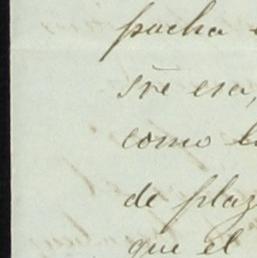 pacha
sre esa,
como l
de plaz
que el